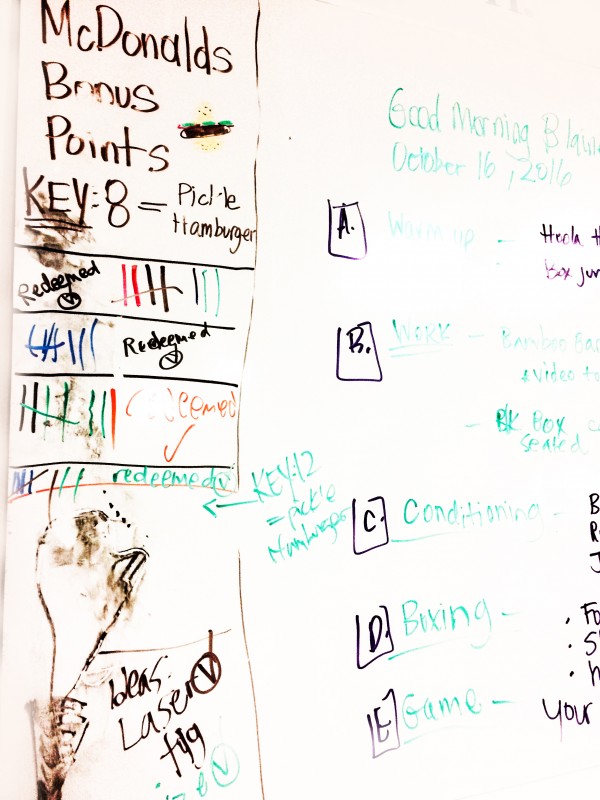 McDonalds
Bonus
Points
KEY: 8 = Pickle
Hamburger
Redeemed
Redeemed
redeemed
redeemed
KEY: 12
= pickle
Hamburger
Ideas:
Laser
tag
Good Morning
October 16, 2016
A. Warm up -
Box
B. Work - Bamboo
video
- BK Box
seated
C. Conditioning -
D. Boxing -
E. Game - Your